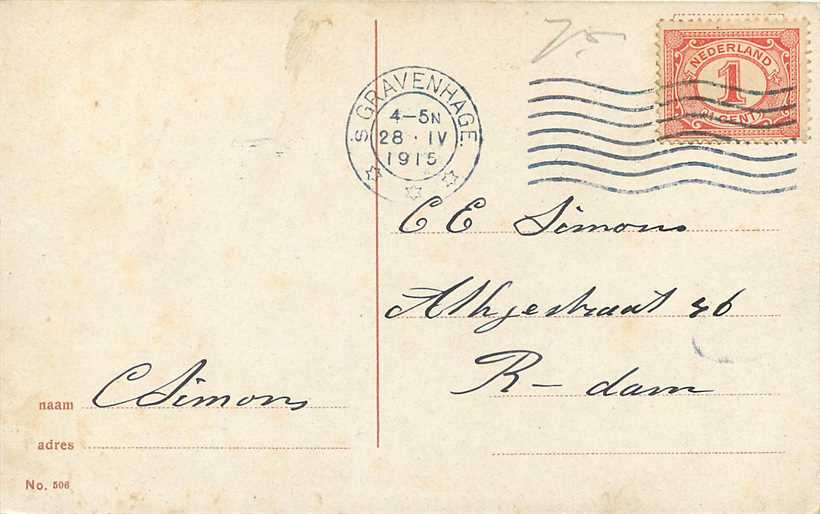 's GRAVENHAGE.
4-5N
28 · IV
1915
NEDERLAND
1
CENT
C E Simons
36
R- dam
naam C Simons
adres
No. 506